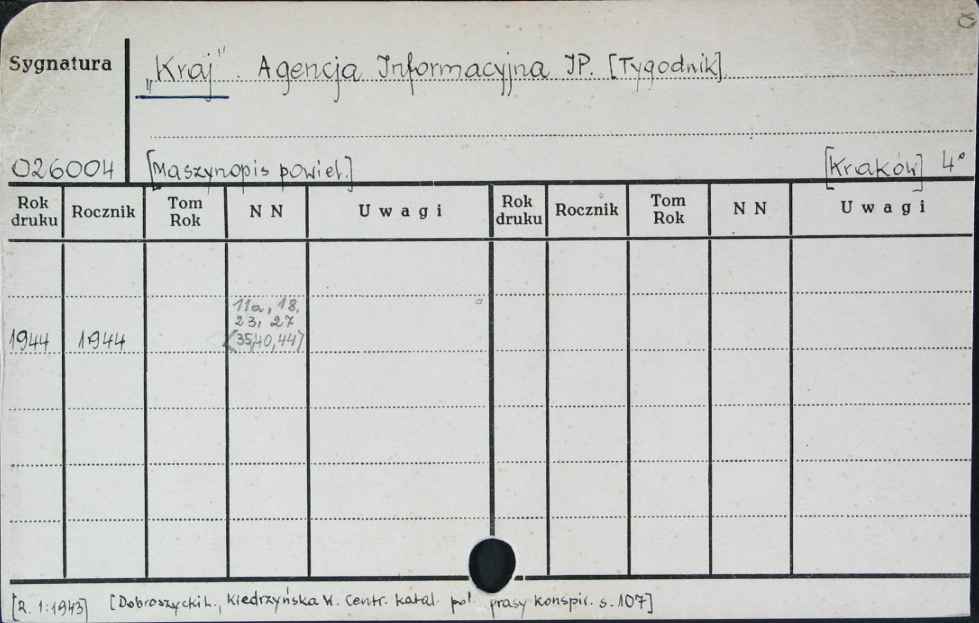 Sygnatura
„Kraj". Agencja Informacyjna IP. [Tygodnik]
026004 [Maszynopis powiel.] [Kraków] 4°
Rok druku Rocznik Tom Rok N N Uwagi Rok druku Rocznik Tom Rok N N Uwagi
11a, 18,
23, 27
1944 1944 (35,40,44)
[R. 1:1943] [Dobroszycki L., Kiedrzyńska W. Centr. katal. pol. prasy konspir. s. 107]